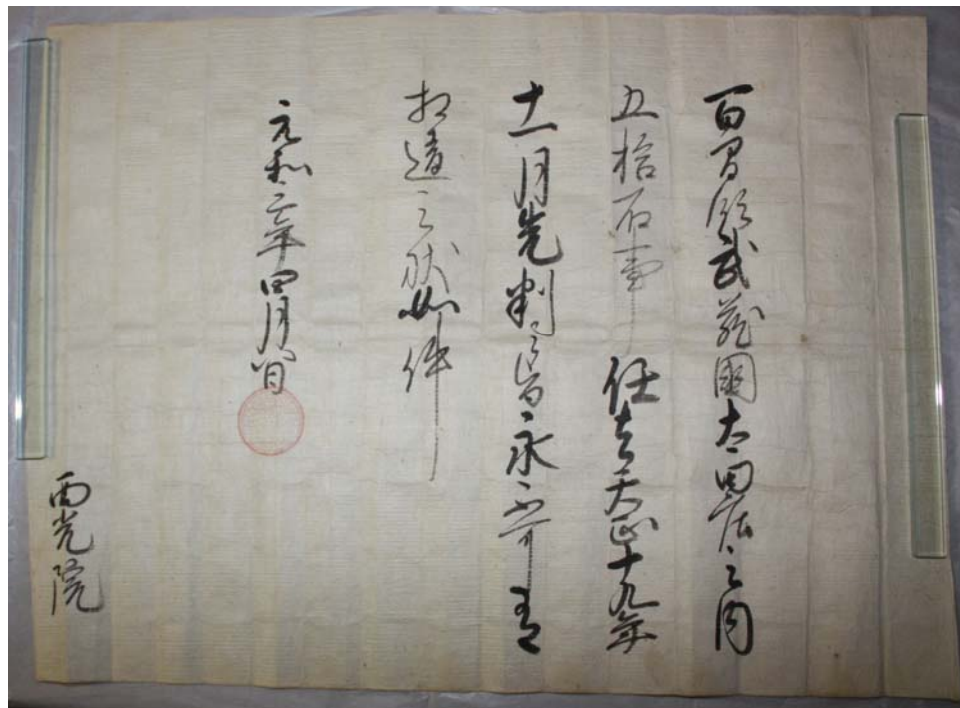 百間領武蔵國太田庄之内
五拾石事任去天正十九年
十一月先判之旨永不可有
相違之状如件
元和三年四月八日
西光院